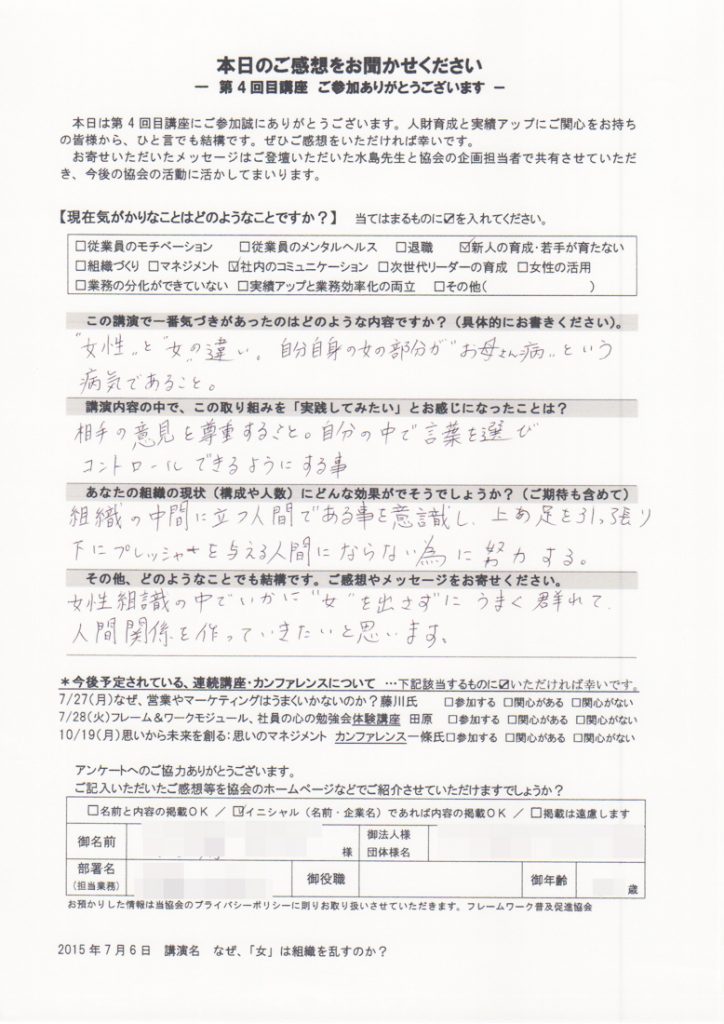 本日のご感想をお聞かせください
― 第４回目講座 ご参加ありがとうございます ―
本日は第４回目講座にご参加誠にありがとうございます。人財育成と実績アップにご関心をお持ち
の皆様から、ひと言でも結構です。ぜひご感想をいただければ幸いです。
お寄せいただいたメッセージはご登壇いただいた水島先生と協会の企画担当者で共有させていただ
き、今後の協会の活動に活かしてまいります。
【現在気がかりなことはどのようなことですか？】 当てはまるものに☑を入れてください。
□従業員のモチベーション □従業員のメンタルヘルス □退職 ☑新人の育成・若手が育たない
□組織づくり □マネジメント ☑社内のコミュニケーション □次世代リーダーの育成 □女性の活用
□業務の分化ができていない □実績アップと業務効率化の両立 □その他( )
この講演で一番気づきがあったのはどのような内容ですか？（具体的にお書きください）。
"女性"と"女"の違い。自分自身の女の部分が"お母さん病"という
病気であること。
講演内容の中で、この取り組みを「実践してみたい」とお感じになったことは？
相手の意見を尊重すること。自分の中で言葉を選び
コントロールできるようにする事
あなたの組織の現状（構成や人数）にどんな効果がでそうでしょうか？（ご期待も含めて）
組織の中間に立つ人間である事を意識し、上の足を引っ張り
下にプレッシャーを与える人間にならない為に努力する。
その他、どのようなことでも結構です。ご感想やメッセージをお寄せください。
女性組識の中でいかに"女"を出さずにうまく群れて
人間関係を作っていきたいと思います。
＊今後予定されている、連続講座・カンファレンスについて …下記該当するものに☑いただければ幸いです。
7/27(月)なぜ、営業やマーケティングはうまくいかないのか？藤川氏 □参加する □関心がある □関心がない
7/28(火)フレーム＆ワークモジュール、社員の心の勉強会体験講座 田原 □参加する □関心がある □関心がない
10/19(月)思いから未来を創る：思いのマネジメント カンファレンス一條氏□参加する □関心がある □関心がない
アンケートへのご協力ありがとうございます。
ご記入いただいたご感想等を協会のホームページなどでご紹介させていただけますでしょうか？
□名前と内容の掲載ＯＫ ／ ☑イニシャル（名前・企業名）であれば内容の掲載ＯＫ ／ □掲載は遠慮します
御名前 様 御法人様 団体様名
部署名 (担当業務) 御役職 御年齢 歳
お預かりした情報は当協会のプライバシーポリシーに則りお取り扱いさせていただきます。フレームワーク普及促進協会
2015年7月6日 講演名 なぜ、「女」は組織を乱すのか？